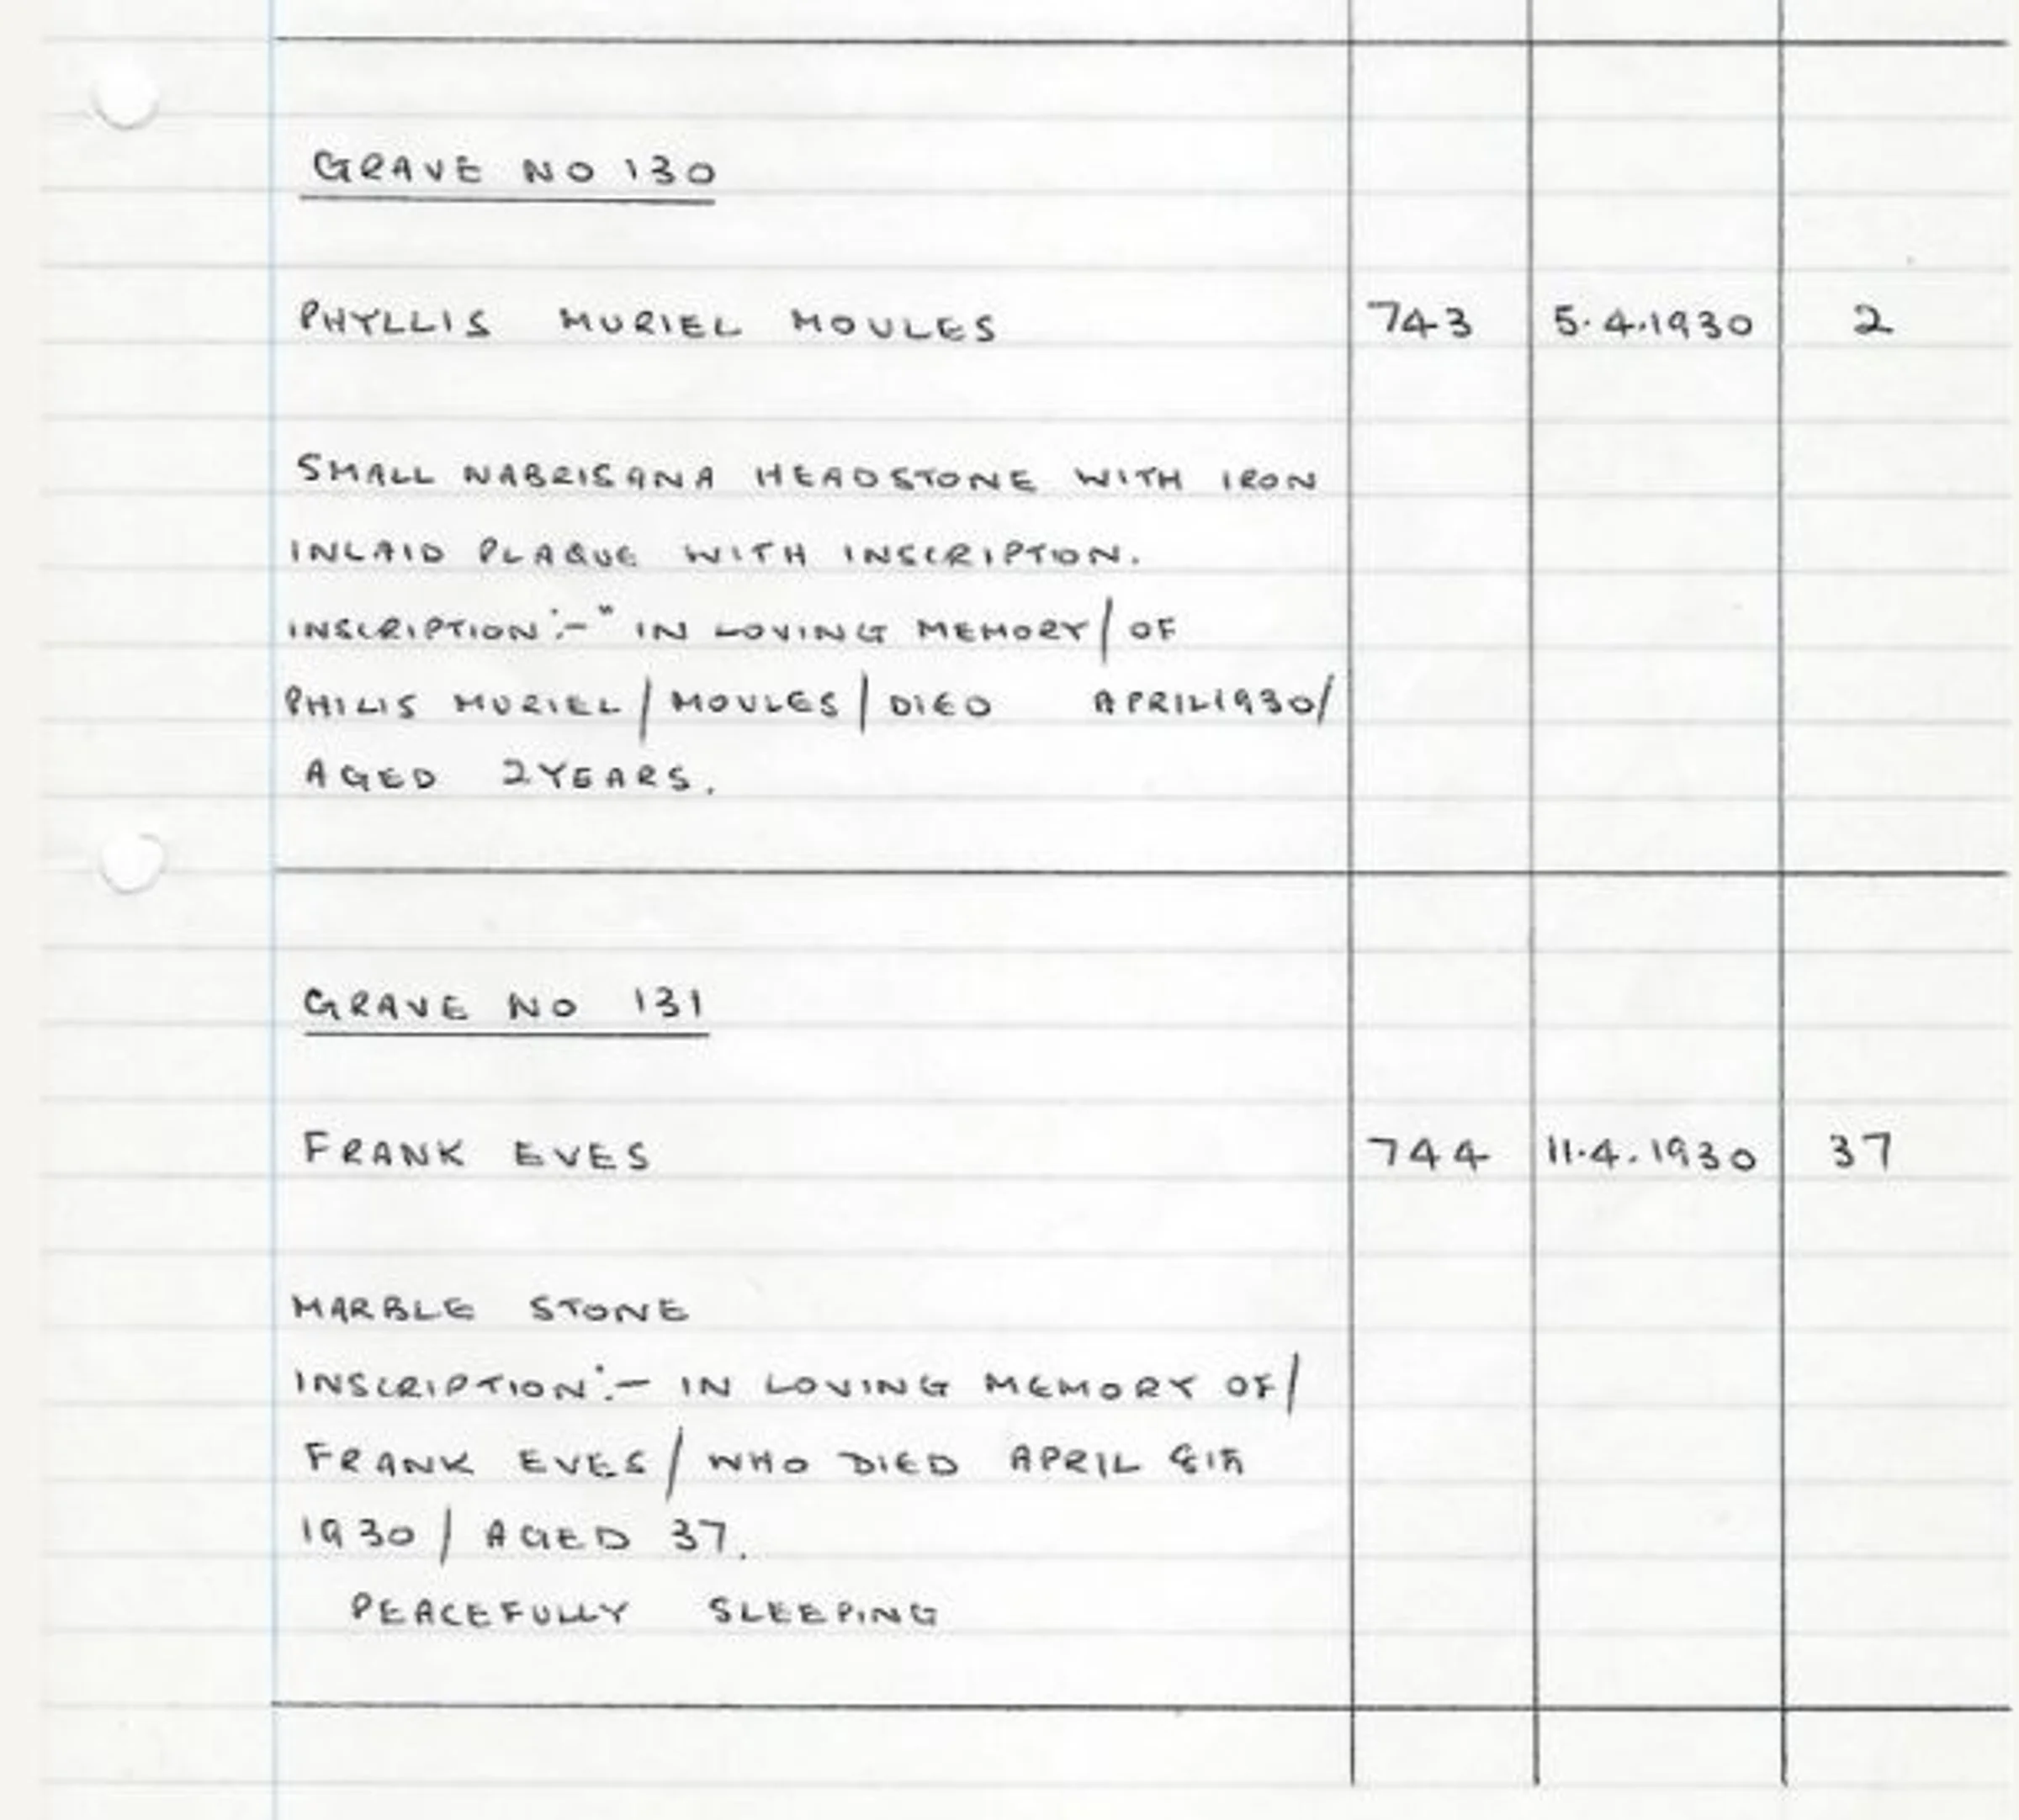 GRAVE NO 130
PHYLLIS MURIEL MOULES 743 5.4.1930 2
SMALL NABRISANA HEADSTONE WITH IRON
INLAID PLAQUE WITH INSCRIPTION.
INSCRIPTION:- " IN LOVING MEMORY / OF
PHILIS MURIEL / MOULES / DIED APRIL 1930 /
AGED 2 YEARS.
GRAVE NO 131
FRANK EVES 744 11.4.1930 37
MARBLE STONE
INSCRIPTION:- IN LOVING MEMORY OF /
FRANK EVES / WHO DIED APRIL
1930 / AGED 37.
PEACEFULLY SLEEPING